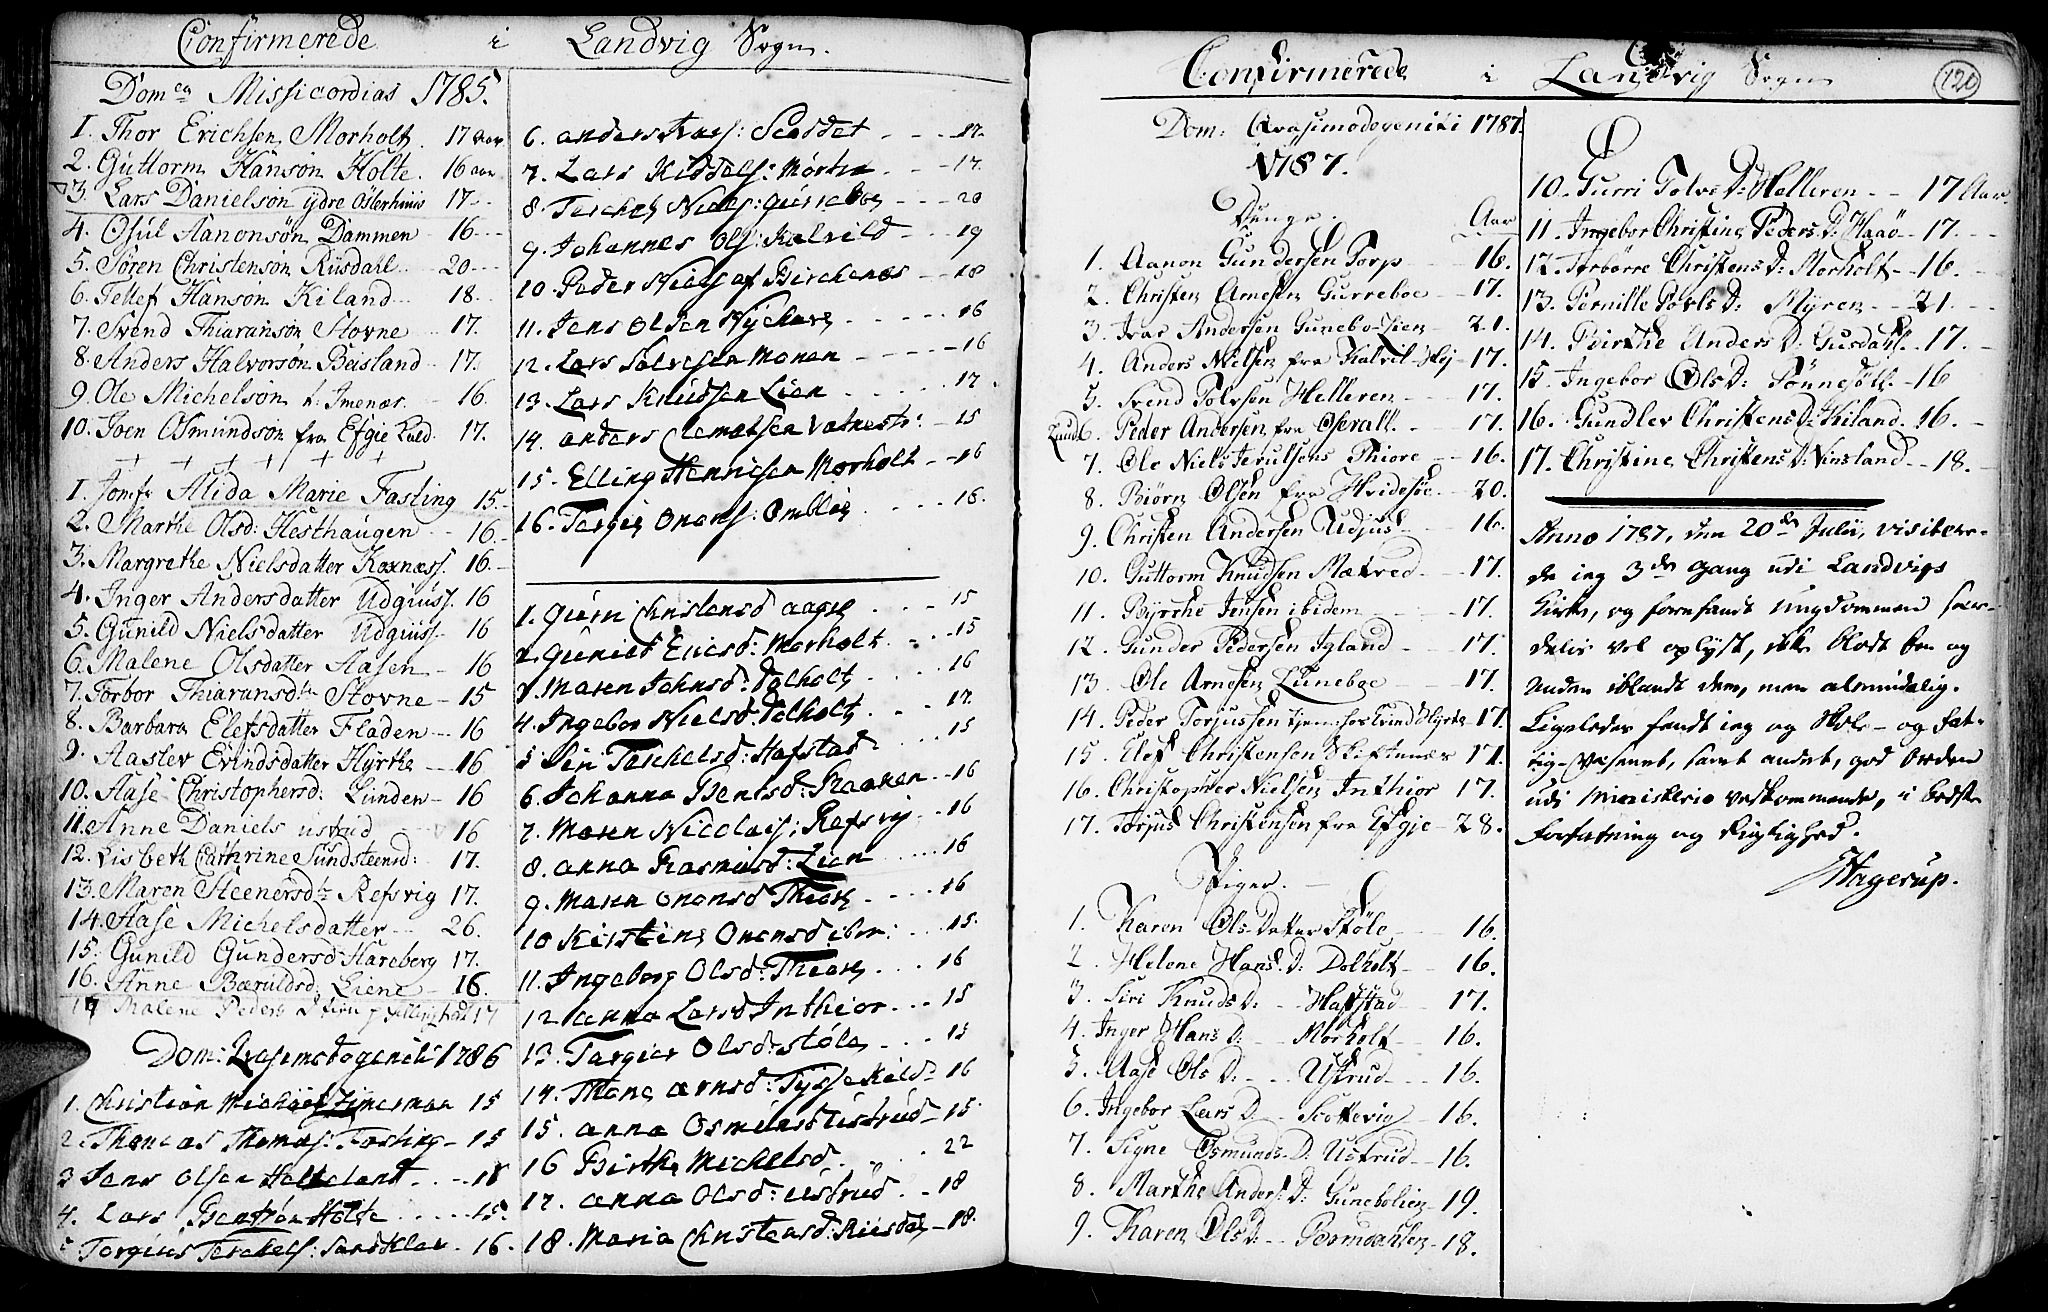 Confirmerede i Landvig Sogn.
Dom:ca Missicordias 1785.
1. Thor Erichsen Morholt. 17 aar
2. Guttorm Hanson Holte. 16 aar
3. Lars Danielson ydre Østerhuus 17
4. Osul Aanonsøn Dammen 16
5. Søren Christensøn Riisdahl 20
6. Tellef Hanson Kiland 18.
7. Svend Thiaransøn Stovne 17.
8. Anders Halvorsøn Beisland 17.
9. Ole Michelson Imenær. 16.
10. Joen Osmundson fra Efgie 17.
1. Jomfr Alida Marie Fasting 15.
2. Marthe Olsd: Hesthaugen 16.
3. Margrethe Nielsdatter 16.
4. Inger Andersdatter Udgiuss. 16
5. Gunild Nielsdatter Udgiuss. 16
6. Malene Olsdatter Aasen 16
7. Torbor Thiaransd:tr Stovne 15
8. Barbara Elefsdatter Fladen 16
9. Aaslev Evindsdatter Hyrthe 16
10. Aase Christophersd: Lunden 16
11. Anne Daniels ustrud 16
12. Lisbeth Cathrine Sundsteensd: 17.
13. Maren Steenersd:tr Refsvig 17.
14. Aase Michelsdatter 26.
15. Gunild Gundersd Hareberg 17.
16. Anne Bæruldsd: Liene 16.
17 Malene Peders 17
Dom: Qvasimodogeniti 1786
1. Christian Michael Zimerman 15
2. Thomas Thomas: Fasting 15
3 Jens Olsen 18
4. Lars Bentsøn Holte 15.
5 Torgius Terchels: 16.
6. Anders 17.
7. Lars 17.
8. Terchel Niels: Gurreboe 20
9. Johannes Ols: Kalvild 19
10. Peder Niels af Birchenæs 18
11. Jens Olsen 16
12. Lars Salvesen Monen 16
13. Lars Knudsen Lien 17.
14. Anders Clemetsen Vatnestr: 15
15. Elling Henrichsen Morholt 16
16. Torgius Onons: 16.
1. Gurri Christensd Aagre 15
2. Gunild Ericsd: Morholt 15
3. Maren Johnsd: Dalholt 16
4. Ingebor Nielsd: Dalholt 17.
5 Siri Terchelsd: Hafstad 15
6. Johanna Bentsd: 16
7. Maren Nicolais: Refsvig 16
8. Anna Rasmusd: Lien 16
9. Maren Ononsd Thiore 16
10 Kirstine Ononsd ibm: 15.
11. Ingeborg Olsd: Thiore 16
12 Anna Larsd Inthior 15
13. Torgier Olsd: Støle 15
14. Thone Arnsd: 16
15. Anna Osmunsd Ustrud 15.
16 Birthe Michelsd. 22
17. Anna Olsd: Ustrud 18
18. Maria Christensd: Riisdal 18.
Confirmerede i Landvig Sogn
120
Dom: Qvasimodogeniti 1787.
1787.
Dænge. Aar
1. Aanon Gundersen Torp 16.
2. Christen Arnesen Gurreboe 17.
3. Ivar Andersen Gunebo-Lien 21.
4. Anders Nielsen fra Kalvil-Hej 17.
5. Svend Tolvsen Helleren 17.
6. Peder Andersen fra Osevall. 17.
7. Ole Niels Thiore 16.
8. Biørn Olsen fra 20.
9. Christen Andersen Udjus. 16.
10. Guttorm Knudsen Mætved 17.
11. Byrthe Jensen ibidem 17.
12. Gunder Pedersen Igland 17.
13. Ole Arnesen Luneboe 17.
14. Peder Torjussen tjen: hos Evind Hyrte 17.
15. Elef Christensen Skiftenæs 17.
16. Christopher Nielsen Inthior 17.
17. Torjus Christensen fra Efgje 28.
Piger.
1. Karen Ols Datter Støle 16.
2. Helene Hans D: Dolholt 16.
3. Siri Knuds D: Hafstad 17.
4. Inger Hans D: Morholt 16.
5. Aase Ols D: Ustrud 16.
6. Ingebor Lars D: Skottevig 16.
7. Signe Osmunds D: Ustrud 16.
8. Marthe Anders D: Gunebolien 19.
9. Karen Ols D: 18.
10. Gurri Tolvs D: Helleren 17 Aar.
11. Ingebor Christine Peders D: Haaø 17.
12. Torbørre Christens D: Morholt 16.
13. Pernille Povls D: Myren 21.
14. Birthe Anders D: Gusdahl 17.
15. Ingebor Ols D: Sönnesöl 16
16. Gundlev Christens D: Kiland 16.
17. Christine Christens D: Vinsland 18.
Anno 1787, den 20de Julii, visiteer-
de jeg 3de Gang udi Landvigs
Kirke, og forefandt Ungdommen sær-
deles vel oplyst, ikke blodt een og
anden iblandt dem, men almindelig.
Ligeledes fandt jeg og Skole- og Fat-
tig-Væsenet, samt andet, god Orden
udi Ministerio vedkommende, i bedste
Forfatning og Rigtighed.
Hagerup.